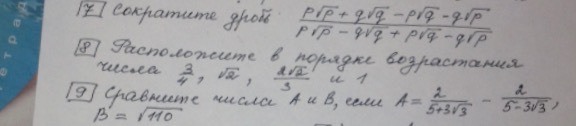 7 Сократите дробь (p√p + q√q - p√q - q√p) / (p√p - q√q + p√q - q√p)
8 Расположите в порядке возрастания
числа 3/4, √2, 2√2/3 и 1
9 Сравните числа A и B, если A = 2/(5+3√3) - 2/(5-3√3),
B = √110